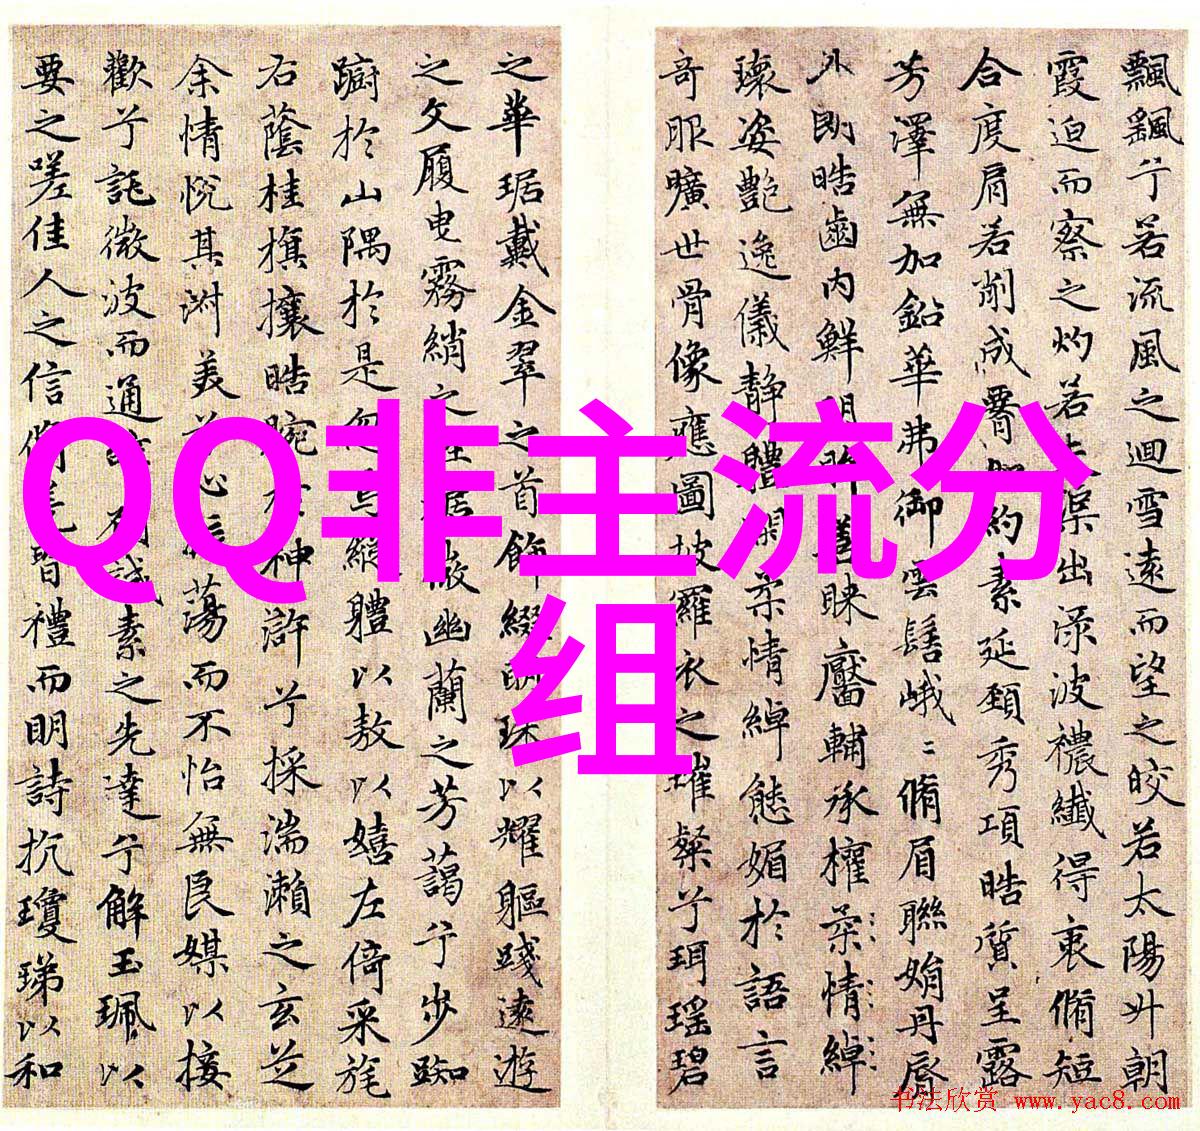 QQ非主流分
组
飄飖兮若流風之迴雪遠而望之皎若太陽升朝
霞迫而察之灼若夫渠出渌波襛纖得衷脩短
合度肩若削成腰如約素延頸秀項皓質呈露
芳澤無加鉛華弗御雲髻峨〻脩眉聯娟丹脣
外朗皓齒内鮮明眸善睞靨輔承權柔情綽
瓌姿艷逸儀静體閑柔情綽態媚於語言
奇服曠世骨像應圖披羅衣之璀粲兮珥瑶碧
之華琚戴金翠之首飾綴明珠以耀軀踐遠遊
之文履曳霧綃之裾幽蘭之芳藹兮步踟
蹰於山隅於是忽焉縱體以敖以嬉左倚采旄
右蔭桂旗攘皓腕於神滸兮採湍瀨之玄芝
余情悅其淑美兮心蕩而不怡無良媒以接
歡兮託微波而通誠素之先達兮解玉珮以
要之嗟佳人之信脩羌習禮而明詩抗瓊珶以和
书法欣赏 www.yac8.com